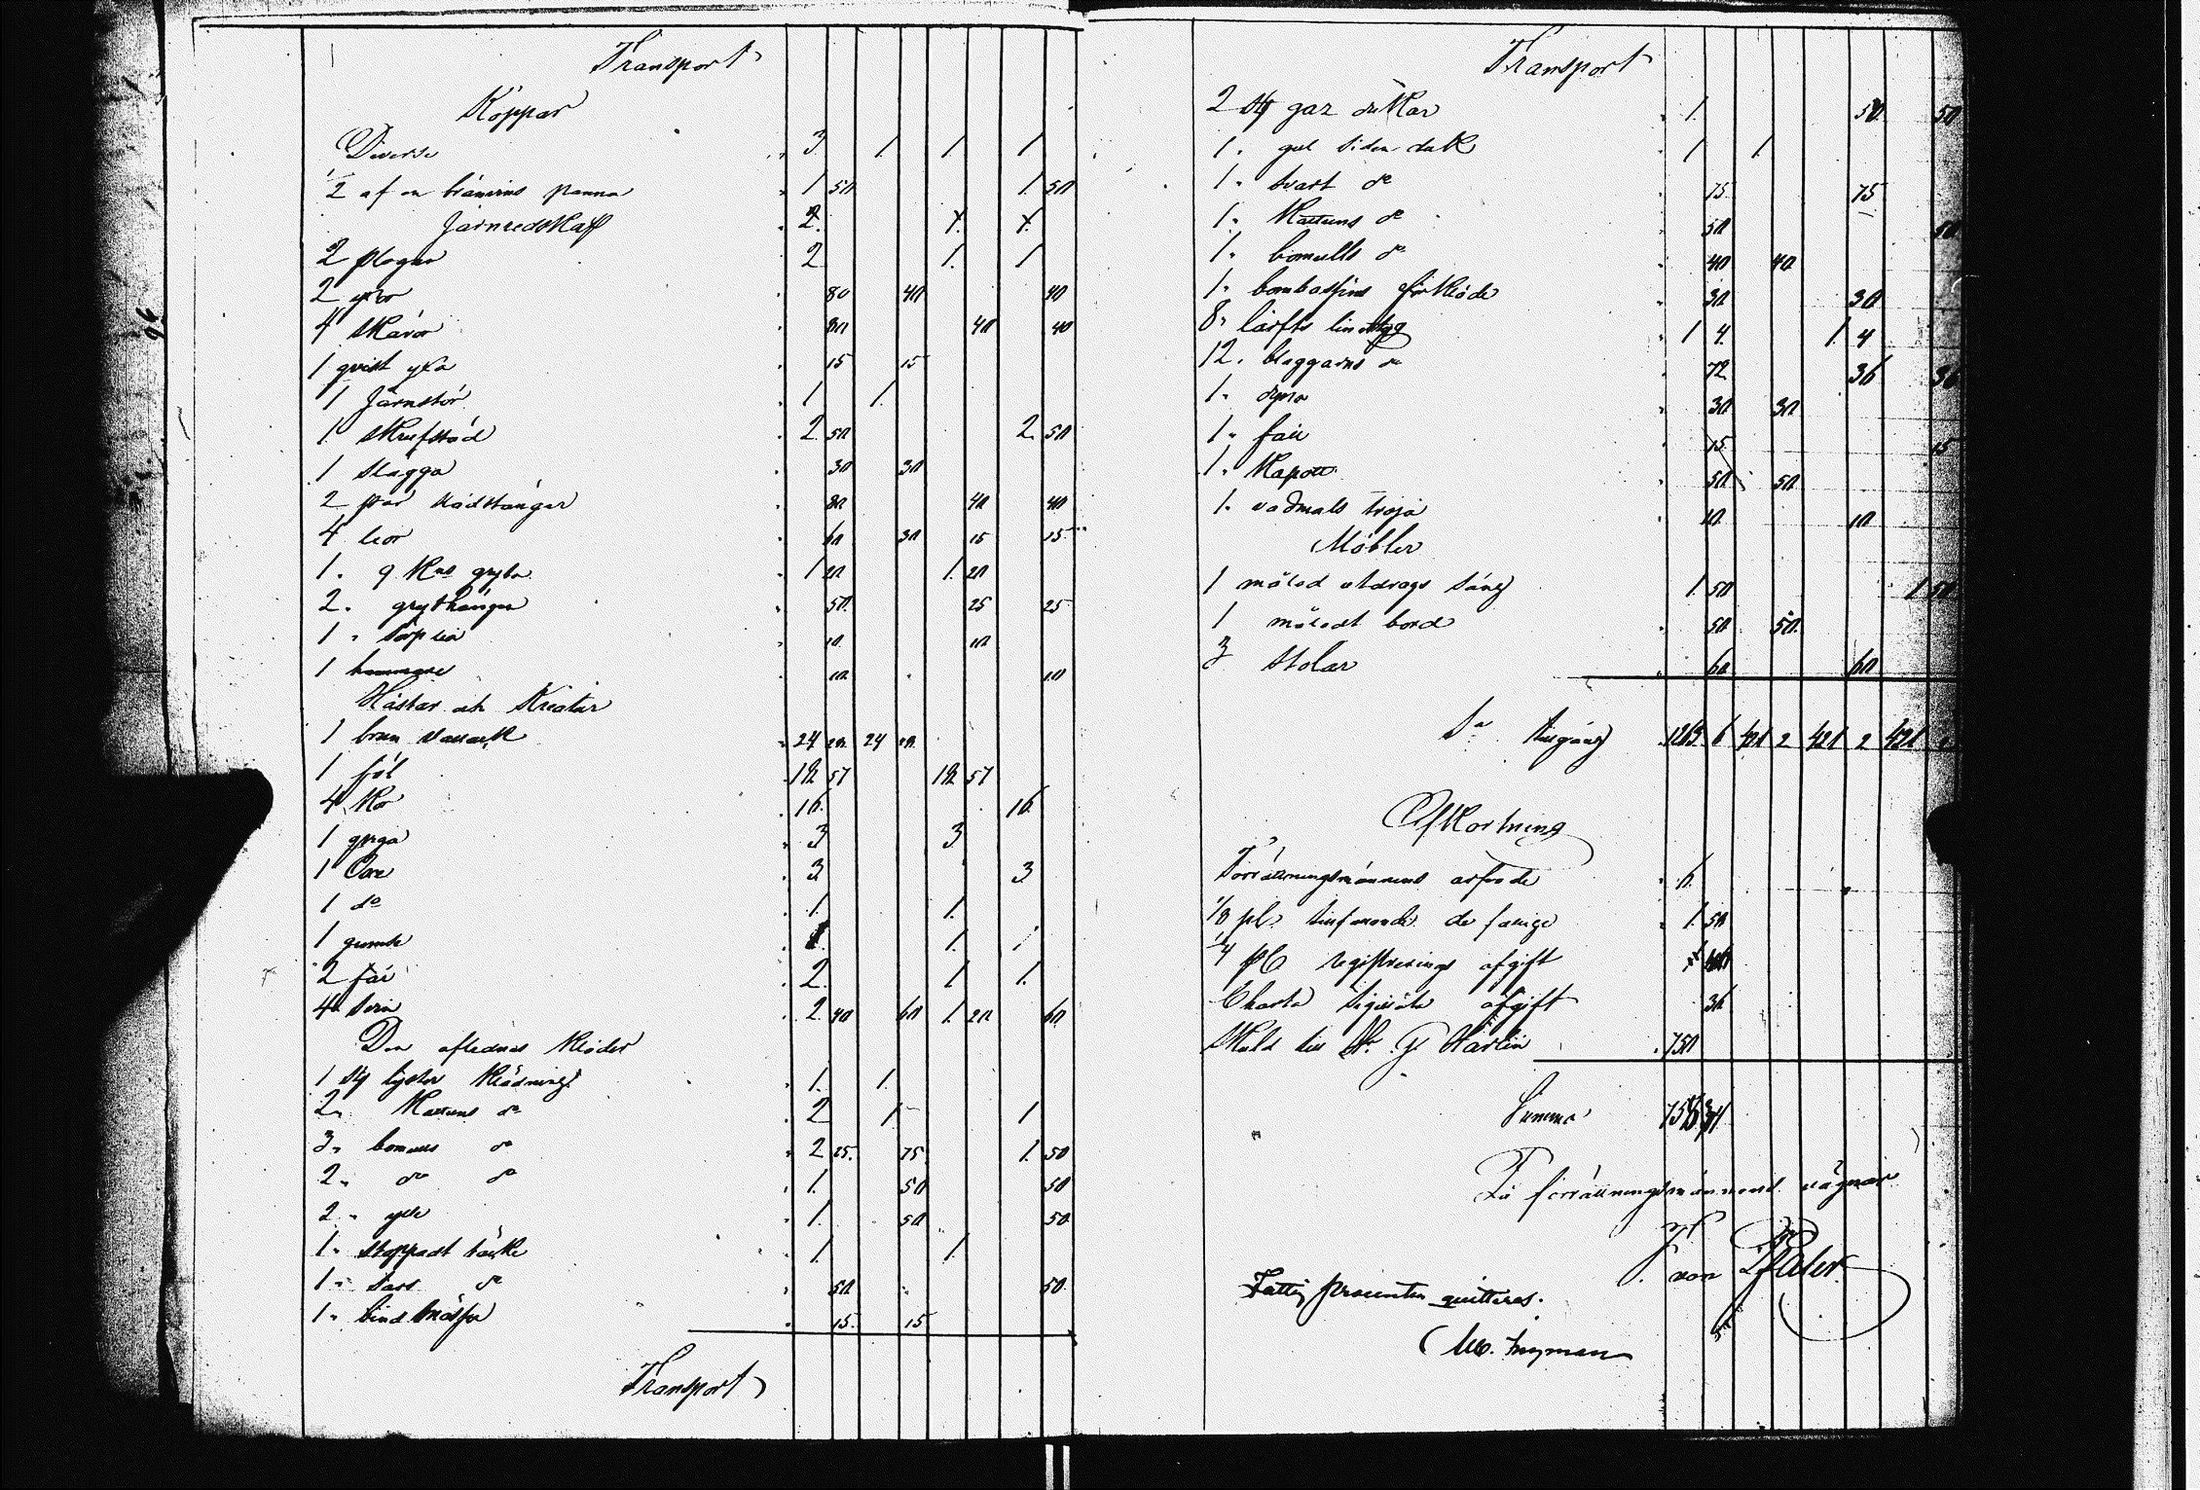 Transport
Koppar
Diverse 3 1 1 1
1/2 af en bränvins panna 1 50 1 50
Järnredskap
2 plogar 2 1 1
2 yxor 80 40 40
4 skäror 80 40 40
1 qvist yxa 15 15
1 Järnstör 1 1
1 skrufstäd 2 50 2 50
1 slägga 30 30
2 par 80 40 40
4 liar 60 30 15 15
1 9 gryta 1 20 1 20
2 50 25 25
1 10 10
1 hammare 10 10
Hästar och Kreatur
1 brun vallack 24 24
1 föl 18 57 18 57
4 Kor 16 16
1 qviga 3 3
1 Oxe 3 3
1 do 1 1
1 gumse 1
2 får 2 1 1
4 svin 2 40 60 1 20 60
Den aflednas kläder
1 st lyster klädning 1 1
2 Kattuns do 2 1 1
3 bomulls do 2 25 75 1 50
2 do do 1 50 50
2 ylle 1 50 50
1 stoppadt täcke 1 1
1 do 50 50
1 bindmössa 15 15
Transport
Transport
2 st gaz dukar 1 50 50
1 gul siden duk 1 1
1 svart do 75 75
1 Kattuns do 50 50
1 bomulls do 40 40
1 bombasins förkläde 30 30
8 lärfts lintyg 1 4 1 4
12 blaggarns do 72 36 36
1 dyna 30 30
1 15 15
1 Kapott 50 50
1 vadmals tröja 10 10
Möbler
1 målad utdrags säng 1 50 1 50
1 måladt bord 50 50
3 stolar 60 60
Sa tillgång 1263 6 421 2 421 2 421
Afkortning
Förrättningsmännens arfvode 6
1/8 pC tillfallande de fattige 1 50
1/4 pC registrerings afgift
Charta sigillata afgift 36
Skuld till 750
Summa
På förrättningsmännens vägnar
J von
Fattig procenten quitteras.